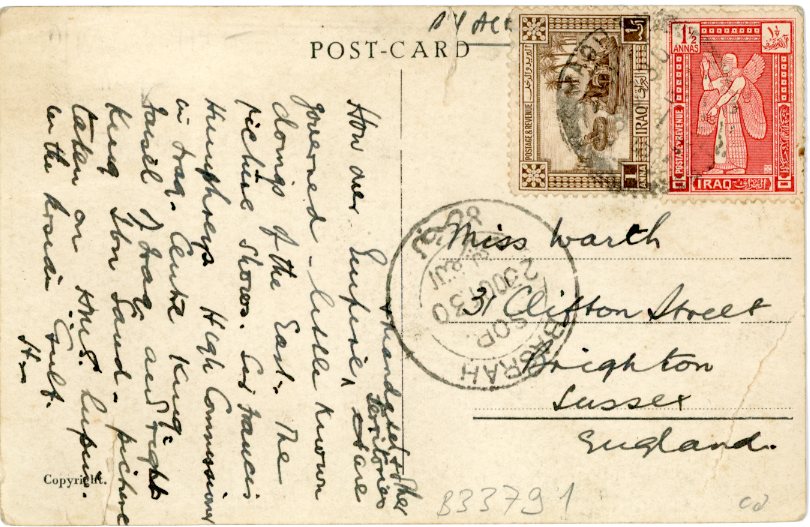 BY AIR
POST-CARD
1 ½ ANNAS
POSTAGE & REVENUE
IRAQ
1
POSTAGE & REVENUE
IRAQ
BASRAH
S.O.R.
2 OCT 30
How our Empire, & mandated & other territories are
governed - little known
doings of the East. The
picture shows. Sir Francis
Humphreys High Commissioner
in Iraq. Centre King
Faisal of Iraq and right
King Ibn Saud - picture
taken on HMS. Lupin.
in the Persian Gulf.
Miss Warth
31 Clifton Street
Brighton
Sussex
England.
Copyright.
B33791